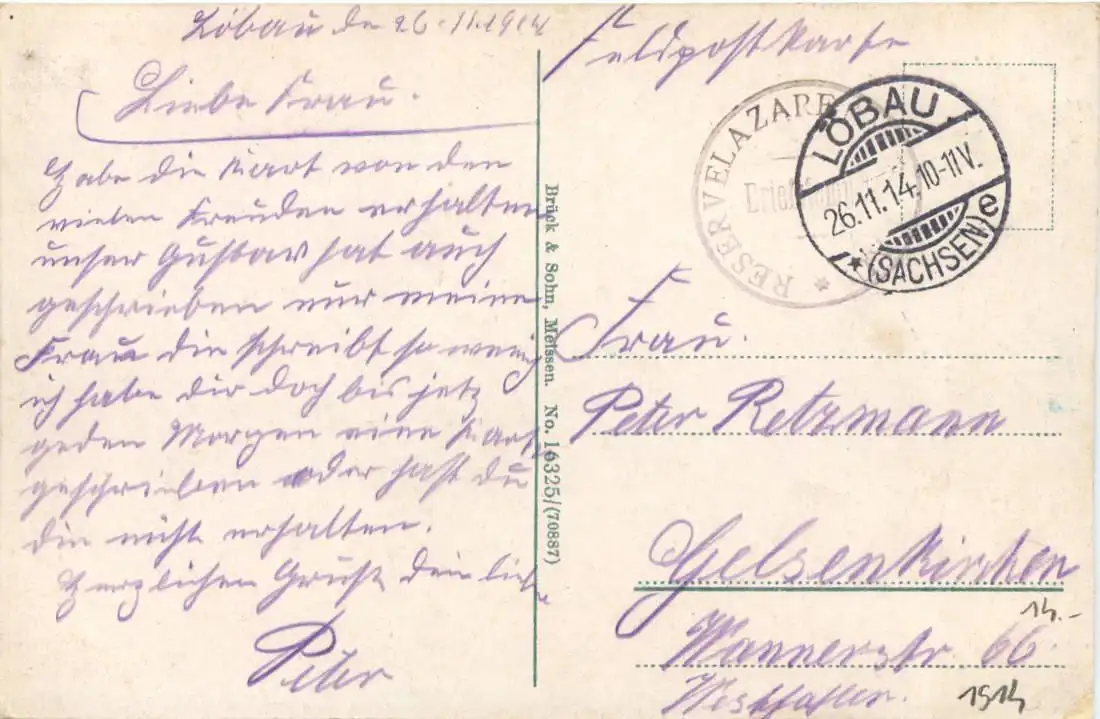 Löbau den 26.11.1914
Liebe Frau.
Habe die Kart von den
vielen Freuden erhalten
unser Gustav hat auch
geschrieben nur meine
Frau die schreibt so wenig
ich habe dir doch bis jetz
geden Morgen eine Kart
geschrieben oder hast du
die nicht erhalten.
Herzlichen Gruß dein liebe
Peter
Brück & Sohn, Meissen. No. 16325/(70887)
Feldpostkarte
RESERVELAZARE
Brief
LÖBAU
26.11.14.10-11V.
*(SACHSEN)e
Frau.
Peter Retzmann
Gelsenkirchen
14.-
Wannerstr. 66.
Westfahlen.
1914